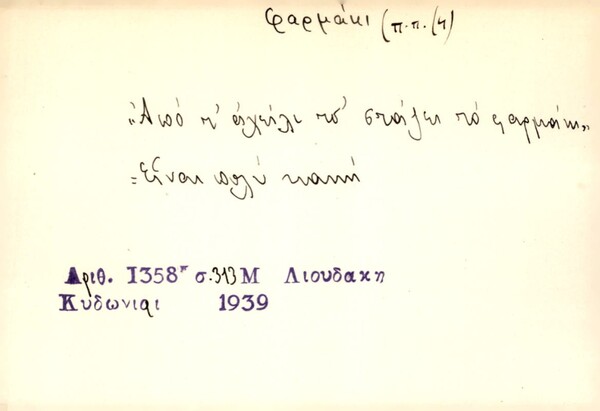 φαρμάκι (π.π. (4)
„Ἀπό τ' ἀχείλι τσ' στάζει τό φαρμάκι„
=Εἶναι πολύ κακή
Αριθ. 1358Γ σ.313 Μ Λιουδακη
Κυδωνιαι 1939